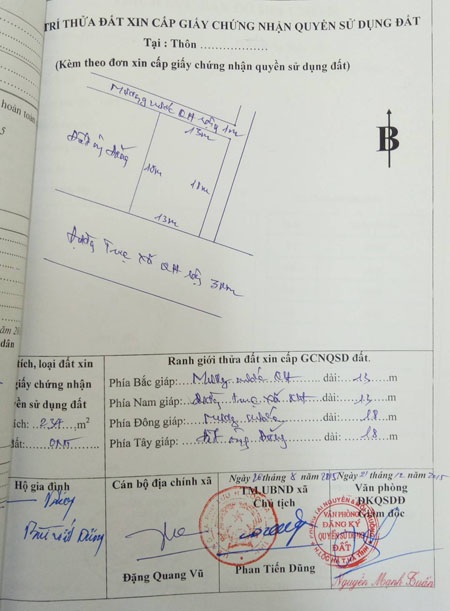 TRÍ THỬA ĐẤT XIN CẤP GIẤY CHỨNG NHẬN QUYỀN SỬ DỤNG ĐẤT
Tại : Thôn ....................
(Kèm theo đơn xin cấp giấy chứng nhận quyền sử dụng đất)
hoán toàn
5
Mương nước QH rộng 1m
13m
Đất ông Dũng
18m
18m
13m
Đường Trục xã QH rộng
B
tích, loại đất xin
giấy chứng nhận
yền sử dụng đất
tích: 234 m²
đất: ONT
Ranh giới thửa đất xin cấp GCNQSD đất.
Phía Bắc giáp: Mương nước QH dài: 13 m
Phía Nam giáp: Đường trục xã QH dài: 13 m
Phía Đông giáp: Mương nước dài: 18 m
Phía Tây giáp: Đất ông Dũng dài: 18 m
Hộ gia đình
Bùi Dũng
Cán bộ địa chính xã
Đặng Quang Vũ
Ngày 26 tháng 8 năm 2015
TM.UBND xã
Chủ tịch
Phan Tiến Dũng
Ngày 21 tháng 12 năm 2015
Văn phòng
ĐKQSDĐ
Giám đốc
VĂN PHÒNG
ĐĂNG KÝ
QUYỀN SỬ DỤNG
ĐẤT
Nguyễn Mạnh Tuấn